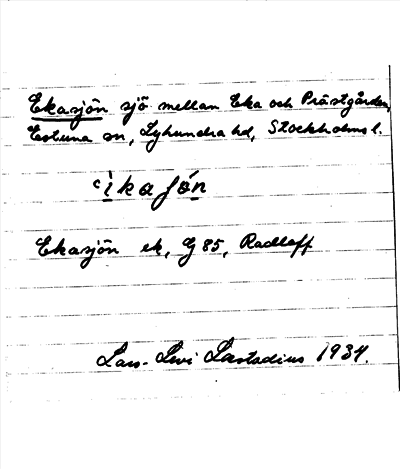 Ekasjön sjö mellan Eka och Prästgården,
Estuna sn, Lyhundra hd, Stockholms l.
ìkaʃón
Ekasjön ek, G 85, Radloff
Lars-Levi Læstadius 1934.